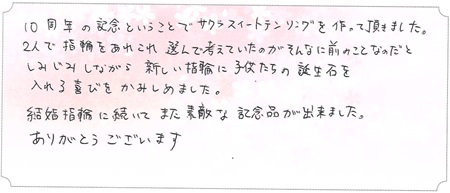 10周年の記念ということでサクラスイートテンリングを作って頂きました。
2人で指輪をあれこれ選んで考えていたのがそんなに前のことなのだと
しみじみしながら 新しい指輪に子供たちの誕生石を
入れる喜びをかみしめました。
結婚指輪に続いてまた素敵な記念品が出来ました。
ありがとうございます